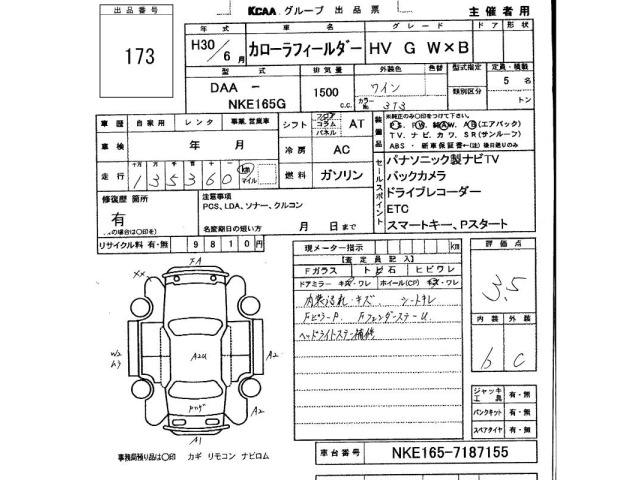 出品番号
173
KCAA グループ 出品票
主催者用
年式 車名 グレード ドア 形状
H30/6月 カローラフィールダー HV G W×B
型式 排気量 外装色 色替 型式指定 定員・積載
DAA - NKE165G
1500 c.c.
ワイン
カラーNo. 3T3
類別区分
5 名
トン
車歴 自家用 レンタ 事業、営業車
シフト フロア コラム パネル AT
装備品
※純正のみ〇印をつけて下さい。
P.S. P.W. 純A.W. A.B(エアバック)
T.V. ナビ、カワ、S.R(サンルーフ)
ABS ・ 新車保証書←(注)後日送りのみ
車検 年 月
冷房 AC
走行 十万 万 千 百 十
135360 km マイル
燃料 ガソリン
セールスポイント
パナソニック製ナビTV
バックカメラ
ドライブレコーダー
ETC
スマートキー、Pスタート
修復歴 箇所
有
の場合は〇印を)
注意事項
PCS、LDA、ソナー、クルコン
名変期日の短い方 月 日まで
リサイクル料 有・無 9810円
現メーター指示 km
【査定員記入】
Fガラス トビ石 ヒビワレ
ドアミラー キズ・ワレ ホイール(CP) キズ・ワレ
内装汚れ・キズ シートキレ
FピラーP、FフェンダーステーU、
ヘッドライトステー補修
評価点
3.5
内装 外装
b C
FA
XX
A2
W2
A2U
A2
A1
ジャッキ工具 有・無
パンクキット 有・無
スペアタイヤ 有・無
事務局預り品は〇印 カギ リモコン ナビロム
車台番号 NKE165-7187155